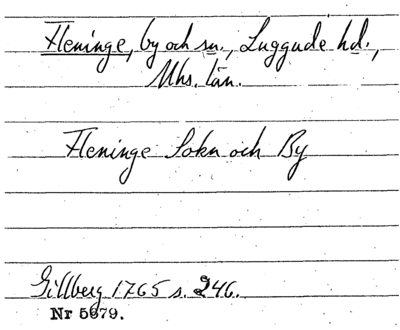 Fleninge, by och sn., Luggude hd.,
Mhs. län.
Fleninge Sokn och By
Gillberg 1765 s. 246.
Nr 5679.